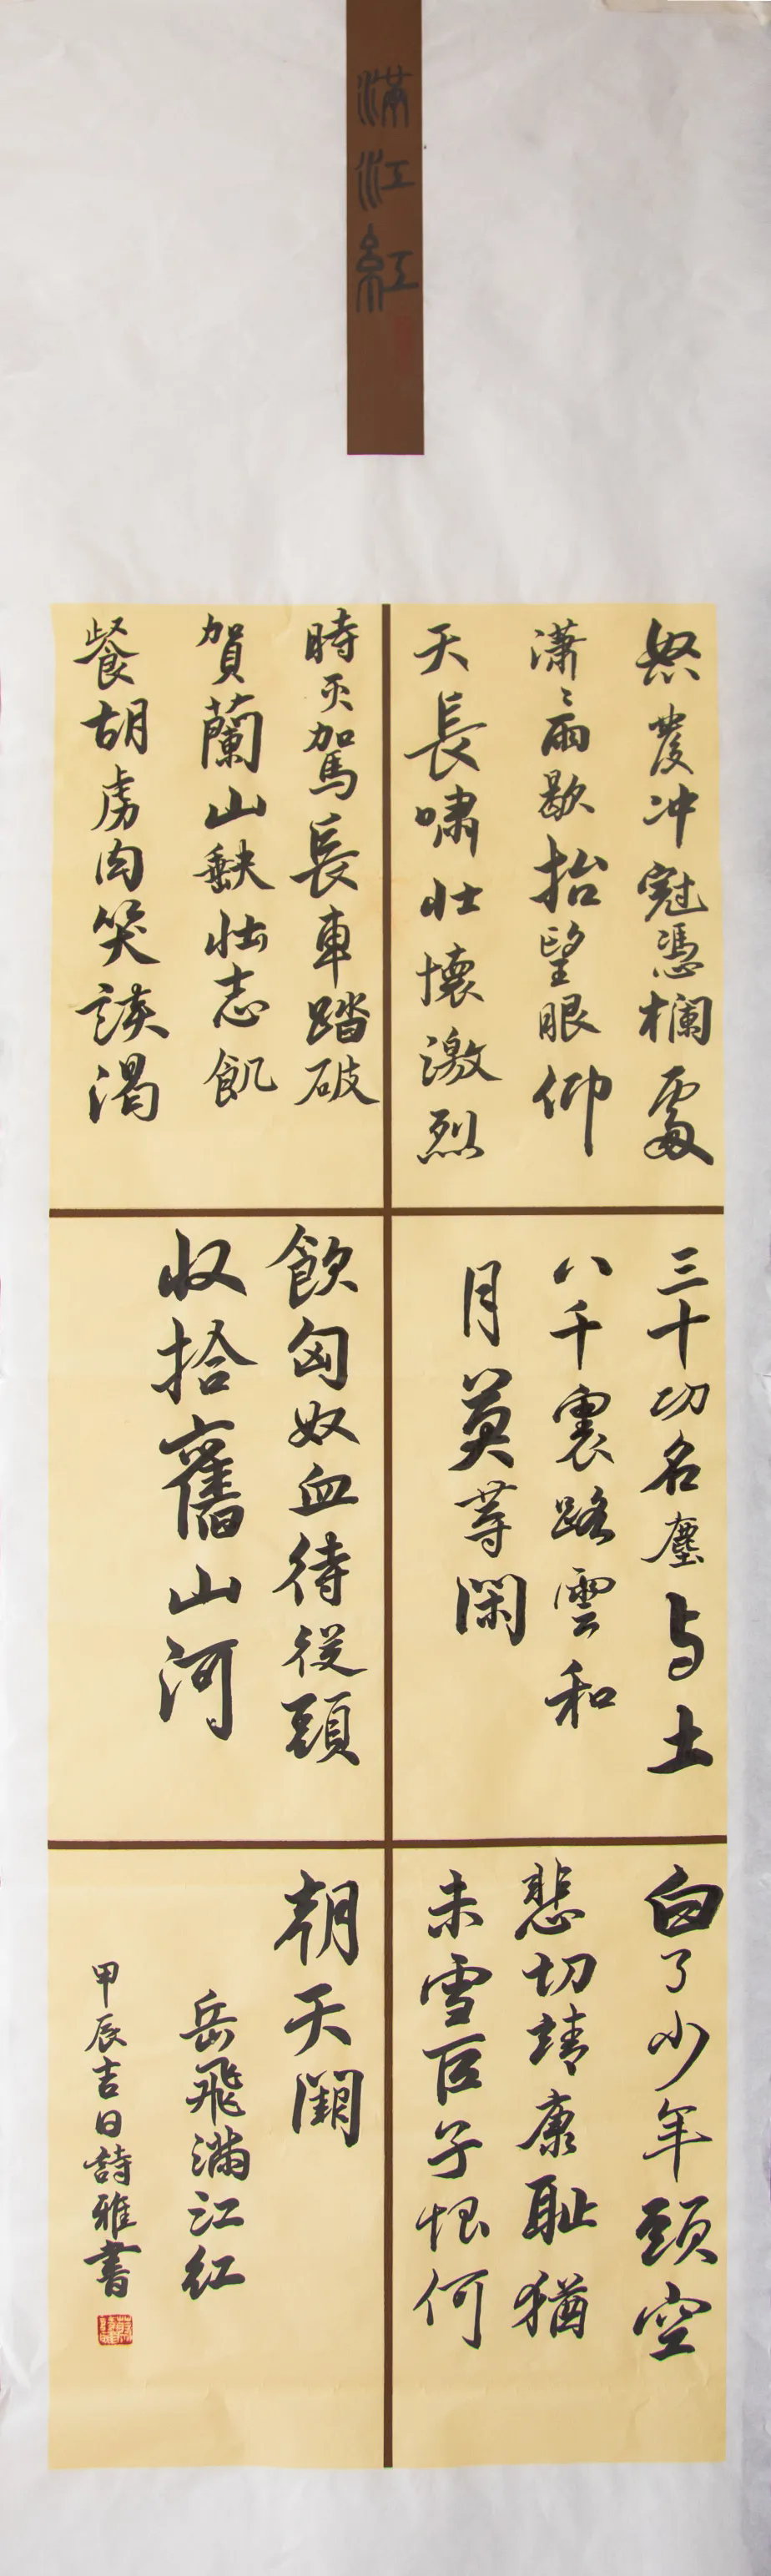 滿江紅
怒發冲冠憑欄處
瀟〻雨歇抬望眼仰
天長嘯壯懷激烈
三十功名塵与土
八千裏路雲和
月莫等閑
白了少年頭空
悲切靖康耻猶
未雪臣子恨何
時灭駕長車踏破
賀蘭山缺壯志飢
餐胡虜肉笑談渴
飲匈奴血待從頭
收拾舊山河
朝天闕
岳飛滿江紅
甲辰吉日詩雅書